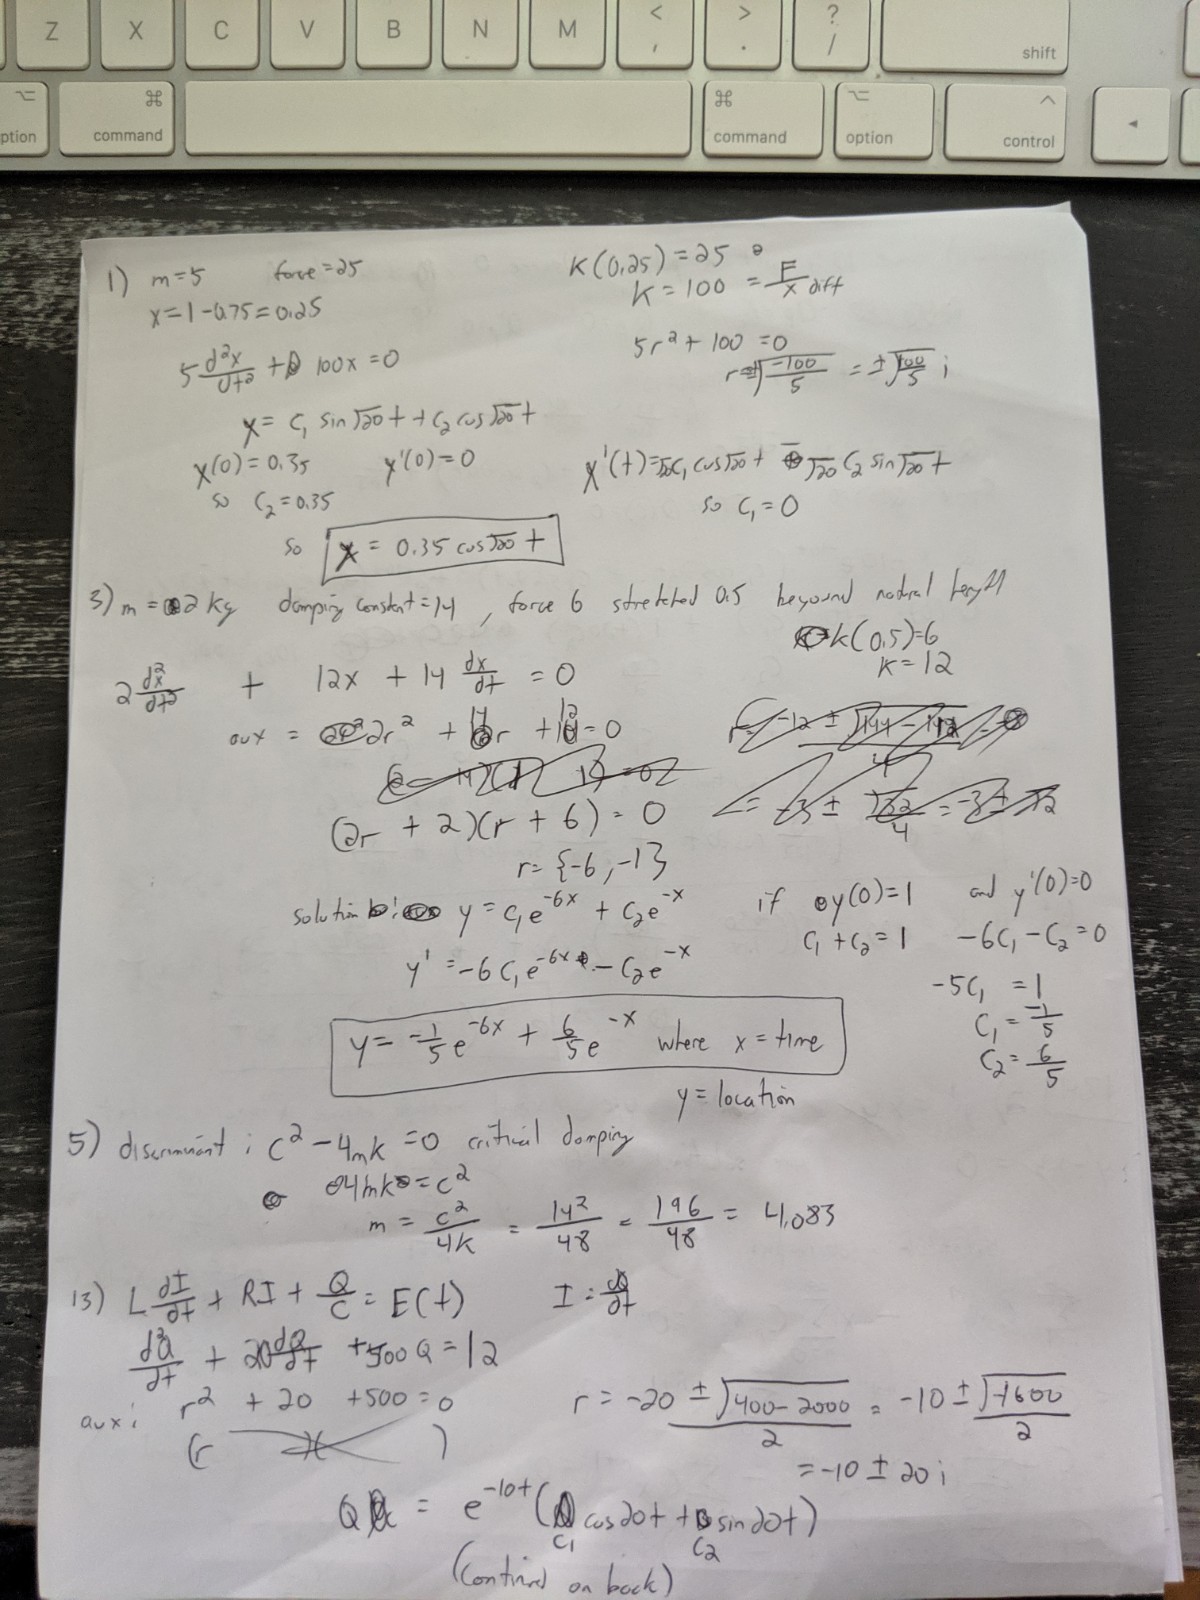 Z X C V B N M < , > . ? / shift
option ⌘ command ⌘ command ⌥ option ^ control ◄
1) m=5 force=25 K(0.25)=25
x=1-0.75=0.25 K=100 = F/x diff
5 d²x/dt² + 100x=0 5r²+100=0
r=±√(-100/5) = ±√(100/5) i
x= c₁ sin√20 t + c₂ cos√20 t
x(0)=0.35 x'(0)=0 x'(t)=√20 c₁ cos√20 t - √20 c₂ sin√20 t
so c₂=0.35 so c₁=0
so x = 0.35 cos√20 t
3) m = 2 kg damping constant=14, force 6 stretched 0.5 beyound natural length
k(0.5)=6
k=12
2 d²x/dt² + 12x + 14 dx/dt = 0
aux = 2r² + 14r + 12=0
(2r + 2)(r + 6) = 0
r= {-6, -1}
solution: y = c₁e^-6x + c₂e^-x if y(0)=1 and y'(0)=0
c₁+c₂=1 -6c₁-c₂=0
y' = -6c₁e^-6x - c₂e^-x
-5c₁ = 1
c₁ = -1/5
c₂ = 6/5
y= -1/5 e^-6x + 6/5 e^-x where x = time
y = location
5) discriminant: c²-4mk=0 critical damping
4mk=c²
m = c²/4k = 14²/48 = 196/48 = 4.083
13) L dI/dt + RI + Q/C = E(t) I = dQ/dt
d²Q/dt + 20 dQ/dt +500Q=12
aux: r² + 20 +500=0 r = -20 ± √(400-2000) / 2 = -10 ± √(-1600) / 2
(r )( )
= -10 ± 20i
Q = e^-10t (c₁ cos20t + c₂ sin20t)
(continued on back)